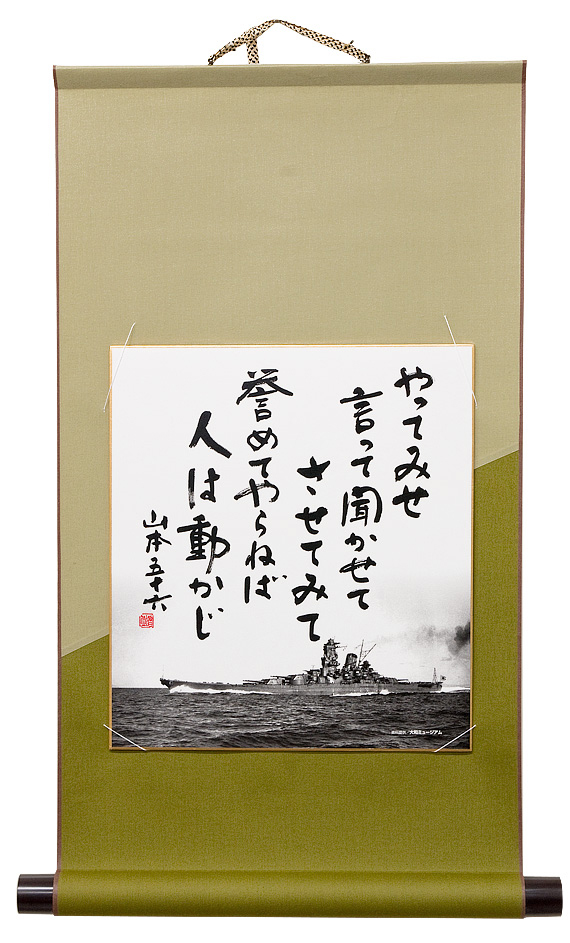 やってみせ
言って聞かせて
させてみて
誉めてやらねば
人は動かじ
山本五十六
資料提供／大和ミュージアム